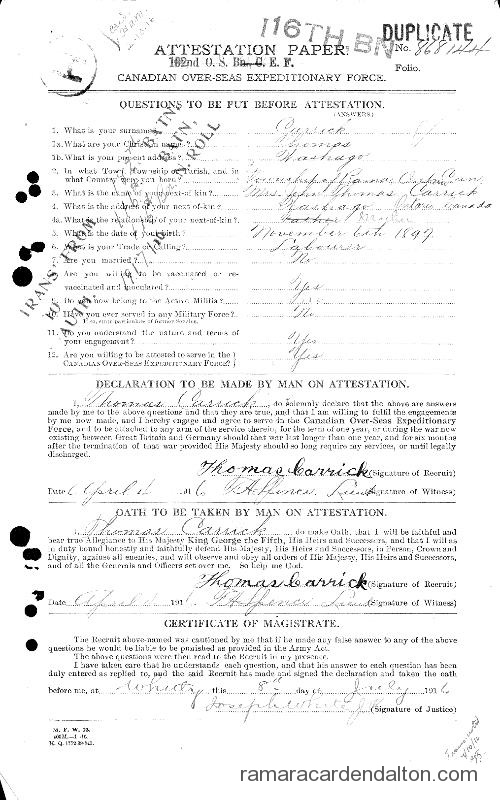 116TH BN
DUPLICATE
ATTESTATION PAPER.
No. 868144
182nd O. S. Bn., C. E. F.
Folio.
CANADIAN OVER-SEAS EXPEDITIONARY FORCE.
QUESTIONS TO BE PUT BEFORE ATTESTATION.
(ANSWERS)
1. What is your surname? Carrick
1a. What are your Christian names? Thomas
1b. What is your present address? Washago
2. In what Town, Township or Parish, and in
what Country were you born? Township of Rama
3. What is the name of your next-of-kin? Mrs. John Thomas Carrick
4. What is the address of your next-of-kin? Washago Ontario Canada
4a. What is the relationship of your next-of-kin? Father Mother
5. What is the date of your birth? November 6th 1897
6. What is your Trade or Calling? Labourer
7. Are you married? No
8. Are you willing to be vaccinated or re-
vaccinated and inoculated? Yes
9. Do you now belong to the Active Militia?
10. Have you ever served in any Military Force? No
If so, state particulars of former Service.
11. Do you understand the nature and terms of
your engagement? Yes
12. Are you willing to be attested to serve in the
CANADIAN OVER-SEAS EXPEDITIONARY FORCE? Yes
DECLARATION TO BE MADE BY MAN ON ATTESTATION.
I, Thomas Carrick, do solemnly declare that the above are answers
made by me to the above questions and that they are true, and that I am willing to fulfil the engagements
by me now made, and I hereby engage and agree to serve in the Canadian Over-Seas Expeditionary
Force, and to be attached to any arm of the service therein, for the term of one year, or during the war now
existing between Great Britain and Germany should that war last longer than one year, and for six months
after the termination of that war provided His Majesty should so long require my services, or until legally
discharged.
Thomas Carrick (Signature of Recruit)
Date April 1916 Lieut (Signature of Witness)
OATH TO BE TAKEN BY MAN ON ATTESTATION.
I, Thomas Carrick, do make Oath, that I will be faithful and
bear true Allegiance to His Majesty King George the Fifth, His Heirs and Successors, and that I will as
in duty bound honestly and faithfully defend His Majesty, His Heirs and Successors, in Person, Crown and
Dignity, against all enemies, and will observe and obey all orders of His Majesty, His Heirs and Successors,
and of all the Generals and Officers set over me. So help me God.
Thomas Carrick (Signature of Recruit)
Date April 191 Lieut (Signature of Witness)
CERTIFICATE OF MAGISTRATE.
The Recruit above-named was cautioned by me that if he made any false answer to any of the above
questions he would be liable to be punished as provided in the Army Act.
The above questions were then read to the Recruit in my presence.
I have taken care that he understands each question, and that his answer to each question has been
duly entered as replied to, and the said Recruit has made and signed the declaration and taken the oath
before me, at Whitby this 8th day of July 1916
Joseph White J.P. (Signature of Justice)
M. F. W. 23.
ramaracardendalton.com